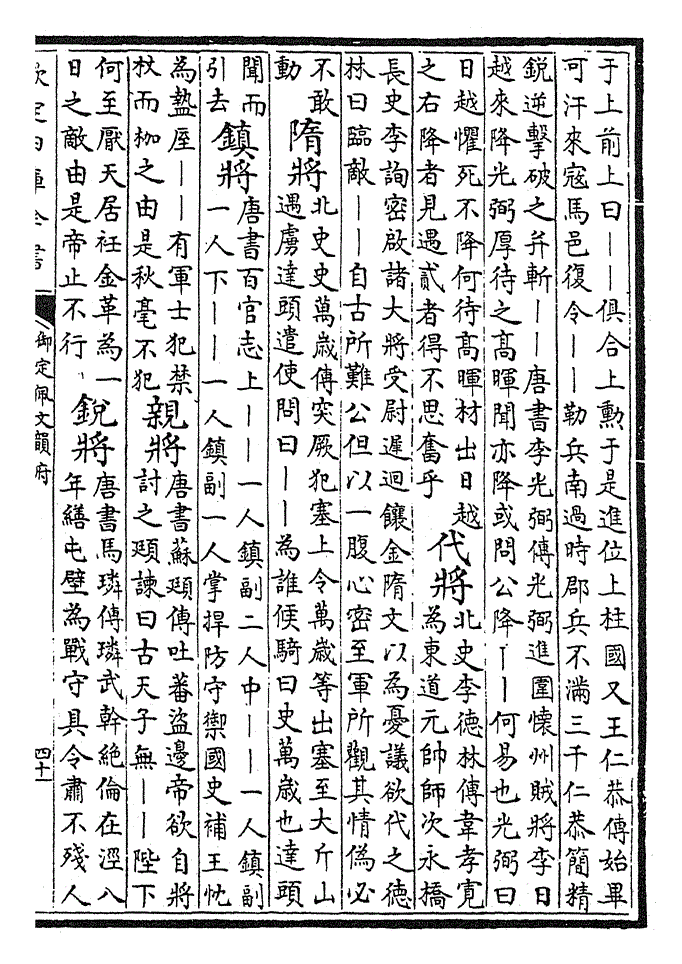 于上前上曰——俱合上勳于是進位上柱國又王仁恭傳始畢
可汗來寇馬邑復令——勒兵南過時郡兵不滿三千仁恭簡精
鋭逆擊破之并斬——唐書李光弼傳光弼進圍懷州賊將李日
越來降光弼厚待之高暉聞亦降或問公降——何易也光弼曰
日越懼死不降何待高暉材出日越
之右降者見遇貳者得不思奮乎
代將
北史李德林傳韋孝寬
為東道元帥師次永橋
長史李詢密啟諸大將受尉遲迥饟金隋文以為憂議欲代之德
林曰臨敵——自古所難公但以一腹心密至軍所觀其情偽必
不敢
動
隋將
北史史萬歲傳突厥犯塞上令萬歲等出塞至大斤山
遇虜達頭遣使問曰——為誰候騎曰史萬歲也達頭
聞而
引去
鎮將
唐書百官志上——一人鎮副二人中——一人鎮副
一人下——一人鎮副一人掌捍防守禦國史補王忱
為盩厔——有軍士犯禁
杖而枷之由是秋毫不犯
親將
唐書蘇頲傳吐蕃盜邊帝欲自將
討之頲諫曰古天子無——陛下
何至厭天居衽金革為一
日之敵由是帝止不行
鋭將
唐書馬璘傳璘武幹絕倫在涇八
年繕屯壁為戰守具令肅不殘人
欽定四庫全書
御定佩文韻府
四十